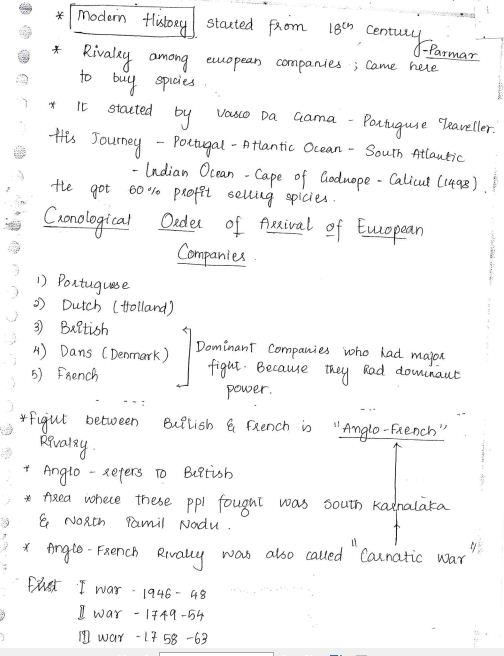 * Modern History started from 18th Century
-Parmar
* Rivalry among european companies ; came here
to buy spicies.
* It started by Vasco Da Gama - Portuguse Traveller.
His Journey - Portugal - Atlantic Ocean - South Atlantic
- Indian Ocean - Cape of Godhope - Calicut (1498).
He got 60% profit selling spicies.
Cronological Order of Arrival of European
Companies.
1) Portuguse
2) Dutch (Holland)
3) British
4) Dans (Denmark)
5) French
Dominant Companies who had major
fight. Because they had dominant
power.
* Fight between British & French is "Anglo-French"
Rivalry.
* Anglo - refers to British
* Area where these ppl fought was South Karnataka
& North Tamil Nadu.
* Anglo-French Rivalry was also called "Carnatic War"
First I war - 1946-48
II war - 1749-54
III war - 1758-63